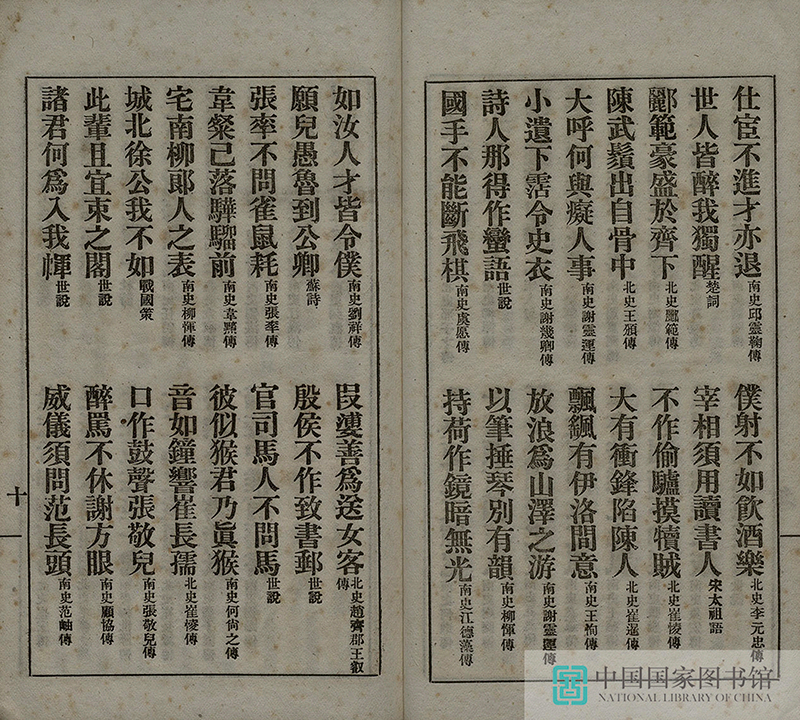 仕宦不進才亦退南史邱靈鞠傳
僕射不如飲酒樂北史李元忠傳
世人皆醉我獨醒楚詞
宰相須用讀書人宋太祖語
酈範豪盛於齊下北史酈範傳
不作偷驢摸犢賊北史崔㥄傳
陳武鬚出自骨中北史王頒傳
大有衝鋒陷陳人北史崔暹傳
大呼何與癡人事南史謝靈運傳
飄颻有伊洛間意南史王恂傳
小遺下霑令史衣南史謝幾卿傳
放浪為山澤之游南史謝靈運傳
詩人那得作蠻語世說
以筆捶琴別有韻南史柳惲傳
國手不能斷飛棋南史虞愿傳
持荷作鏡暗無光南史江德藻傳
如汝人才皆令僕南史劉祥傳
段婆善為送女客北史趙齊郡王叡傳
願兒愚魯到公卿蘇詩
殷侯不作致書郵世說
張率不問雀鼠耗南史張率傳
官司馬人不問馬世說
韋粲已落驊騮前南史韋黯傳
彼似猴君乃真猴南史何尚之傳
宅南柳郎人之表南史柳惲傳
音如鐘響崔長孺北史崔㥄傳
城北徐公我不如戰國策
口作鼓聲張敬兒南史張敬兒傳
此輩且宜束之閣世說
醉罵不休謝方眼南史顧協傳
諸君何為入我幝世說
威儀須問范長頭南史范岫傳
十
中国国家图书馆
NATIONAL LIBRARY OF CHINA